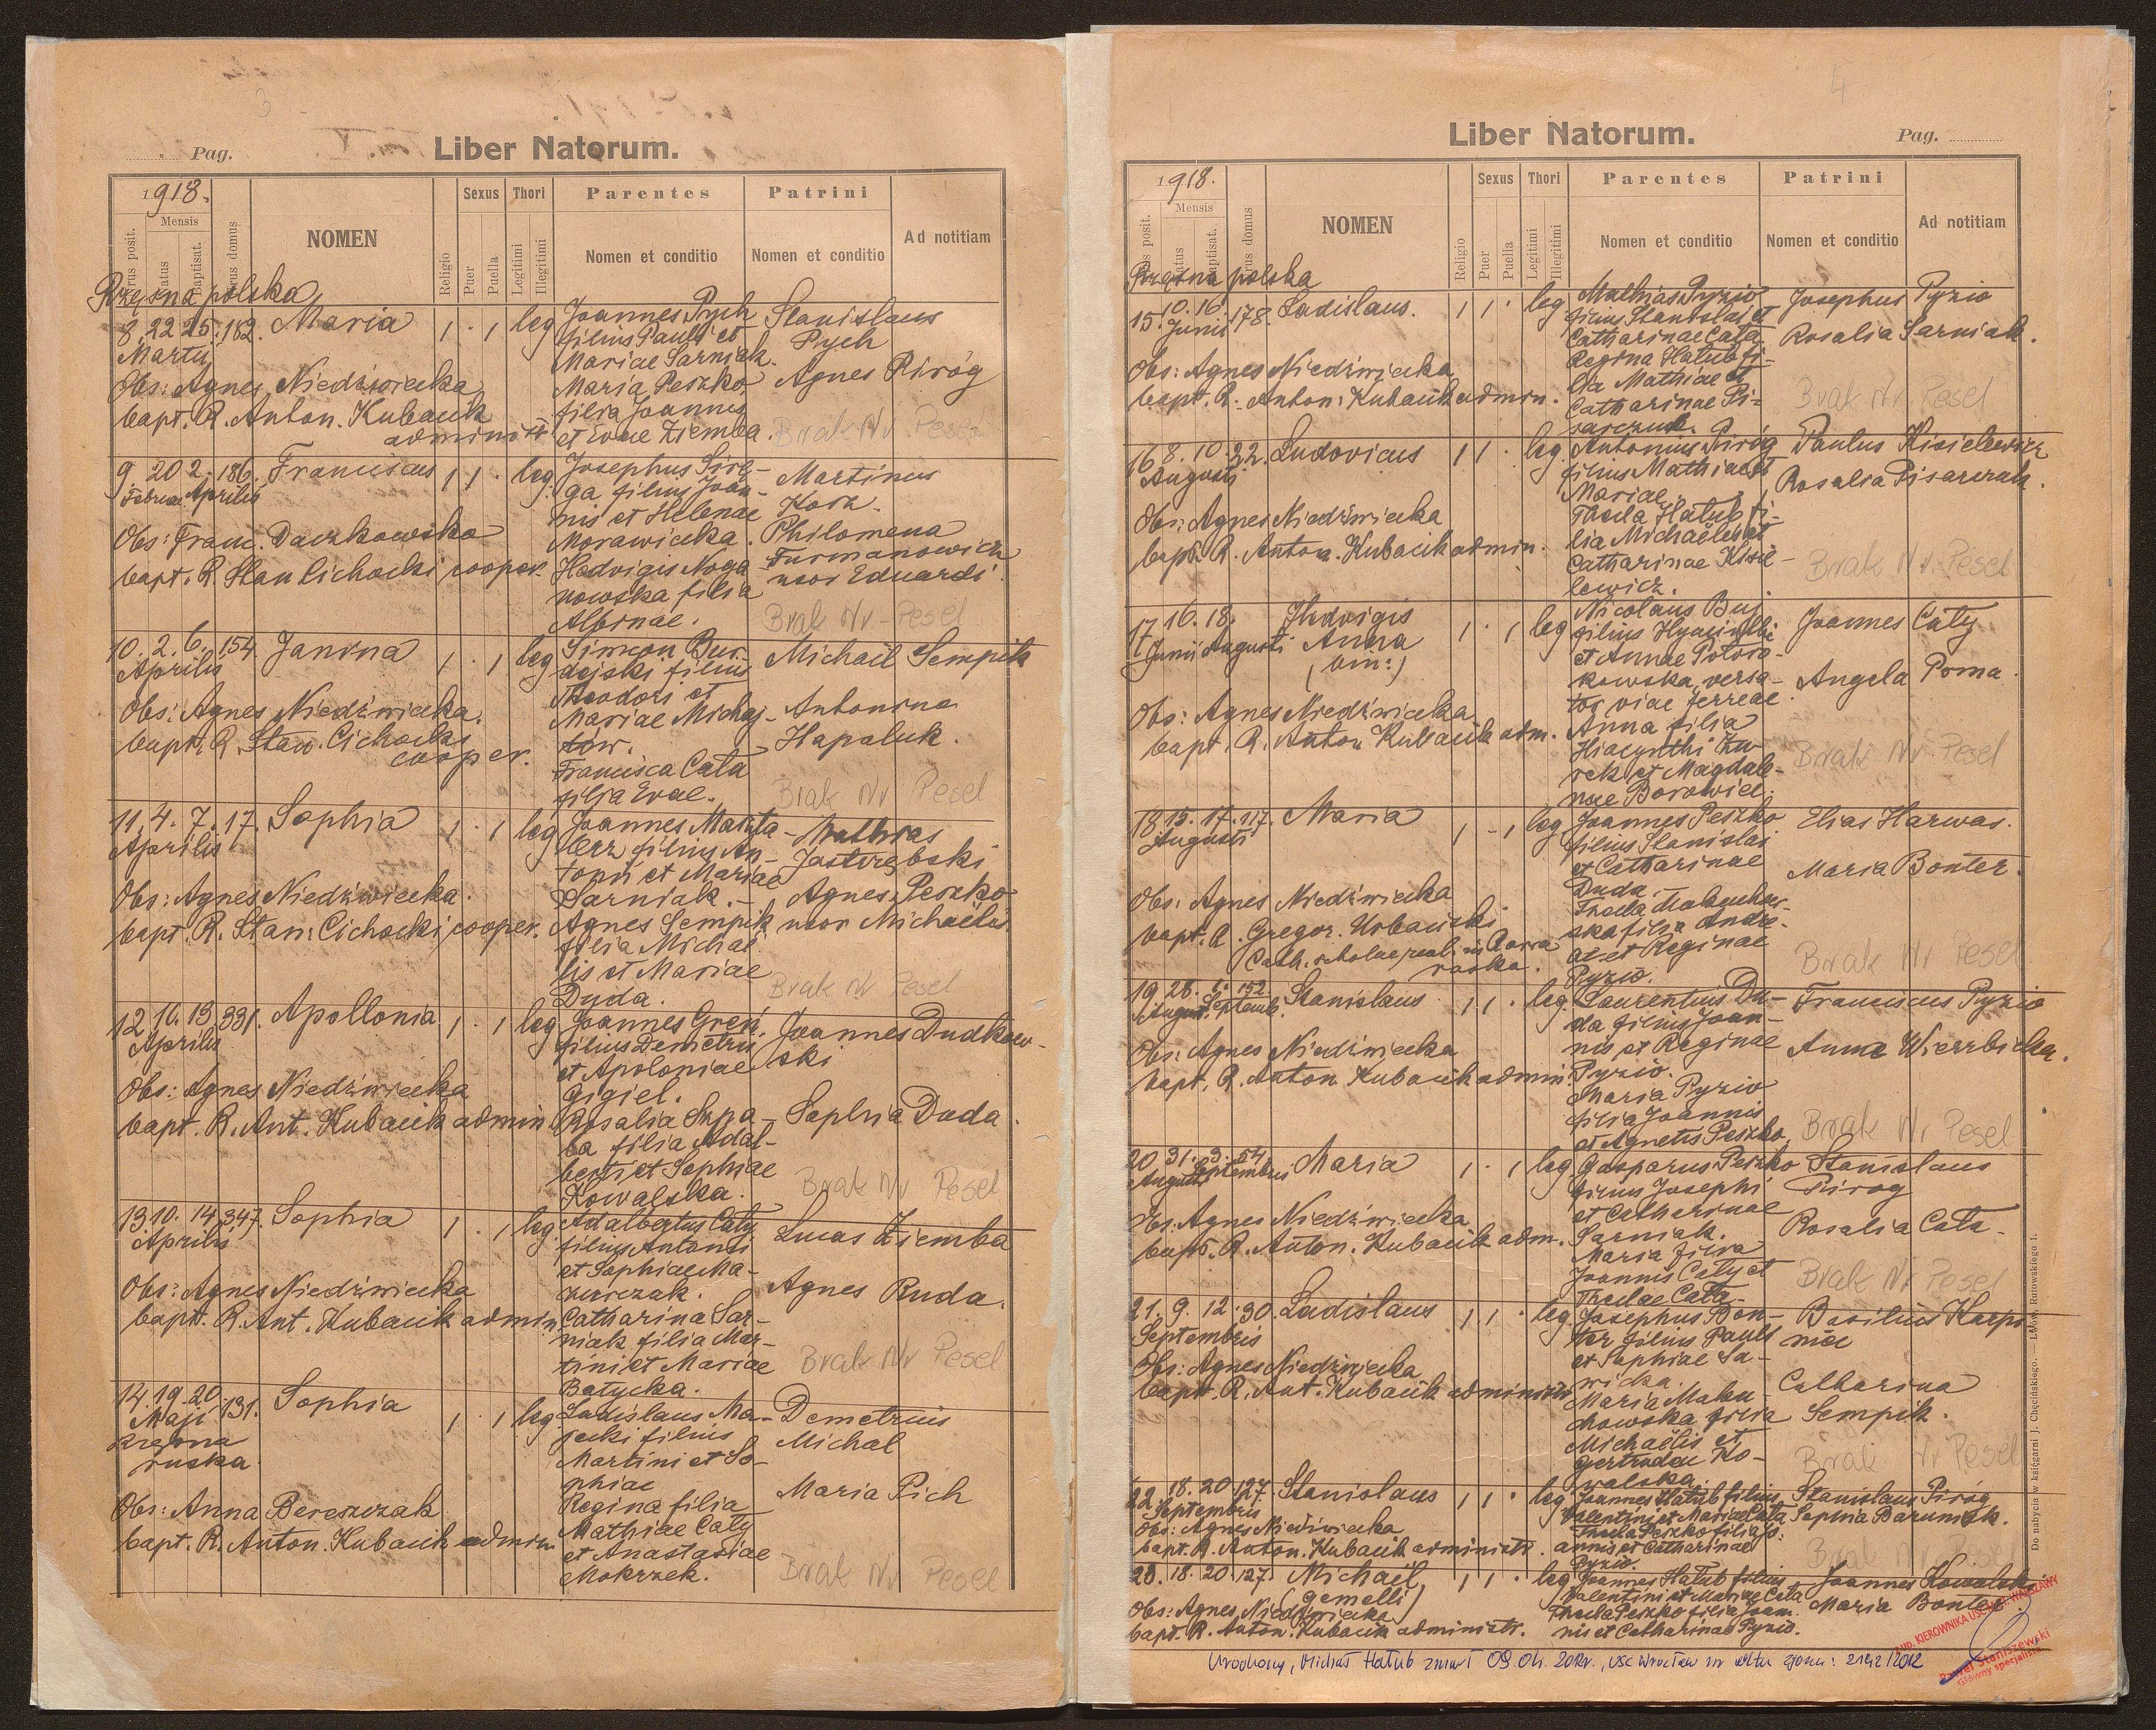 3
Pag.
Liber Natorum.
1918.
Mensis
Baptisat.
NOMEN
Religio
Sexus
Puer
Puella
Thori
Legitimi
Illegitimi
Parentes
Nomen et conditio
Patrini
Nomen et conditio
Ad notitiam
Rzęsna polska
8. 22 25. 182. Maria 1 . 1 leg Joannes Pych Stanislaus
Martii filius Pauli et Pych
Mariae Sarniak.
Obs: Agnes Niedźwiecka Maria Peszko Agnes Piróg
bapt. R. Anton. Kubacik filia Joannis
administr. et Evae Ziemba. Brak Nr Pesel
9. 20 2. 186. Franciscus 1 1 . leg Josephus Sire- Martinus
Februar Aprilis ga filius Joan- Kora.
nis et Helenae
Obs: Franc. Daczkowska Morawiecka. Philomena
Furmanowicz
bapt. R. Stan Cichocki cooper. Hedvigis Noga- uxor Eduardi
nowska filia
Albinae. Brak Nr Pesel
10. 2. 6. 154. Janina 1 . 1 leg Simeon Bur- Michael Sempik
Aprilis dejski filius
Theodori et
Obs: Agnes Niedźwiecka. Mariae Michaj- Antonina
bapt. R. Staw. Cichocki łów. Hapaluk.
cooper. Francisca Cała
filia Evae. Brak Nr Pesel
11. 4. 7. 17. Sophia 1 . 1 leg Joannes Maszta- Mathias
Aprilis lerz filius An- Jastrzębski
tonii et Mariae
Obs: Agnes Niedźwiecka. Sarniak. Agnes Peszko
bapt. R. Stan. Cichocki cooper. Agnes Sempik uxor Michaelis
filia Michae-
lis et Mariae
Duda. Brak Nr Pesel
12 10. 13. 331. Apollonia 1 . 1 leg Joannes Greń Joannes Dudkow-
Aprilis filius Demetrii ski
et Apoloniae
Obs: Agnes Niedźwiecka Gigiel.
bapt. R. Ant. Kubacik admin Rosalia Szpa- Sophia Duda
ba filia Adal-
berti et Sophiae
Kowalska. Brak Nr Pesel
13. 10. 14. 347. Sophia 1 . 1 leg Adalbertus Cały Lucas Ziemba
Aprilis filius Antonii
et Sophiae Ma-
Obs: Agnes Niedźwiecka zurczak. Agnes Ruda.
bapt. R. Ant. Kubacik admin Catharina Sar-
niak filia Mar-
tini et Mariae Brak Nr Pesel
Batycka.
14. 19. 20. 131. Sophia 1 . 1 leg Ladislaus Ma- Demetrius
Maji jecki filius Michal
Krzęsna Martini et So-
ruska phiae
Regina filia Maria Pich
Obs: Anna Bereszczak Mathiae Cały
bapt. R. Anton. Kubacik admin et Anastasiae
Mokrzek. Brak Nr Pesel
4
Liber Natorum.
Pag.
1918.
Mensis
NOMEN
Religio
Sexus
Puer
Puella
Thori
Legitimi
Illegitimi
Parentes
Nomen et conditio
Patrini
Nomen et conditio
Ad notitiam
Rzęsna polska
15. 10. 16. 178. Ladislaus. 1 1 . leg Mathias Pyzio Josephus Pyzio
Junii filius Stanislai et
Catharinae Cała Rosalia Sarniak.
Obs: Agnes Niedźwiecka Regina Hałub fi-
lia Mathiae et
bapt. R. Anton. Kubacik admin. Catharinae Pi- Brak Nr. Pesel
sarczuk.
16 8. 10. 22. Ludovicus 1 1 . leg. Antonius Piróg Paulus Kisielewicz
Augusti filius Mathiae et
Mariae. Rosalia Pisarczuk.
Obs: Agnes Niedźwiecka Thecla Hałub fi-
bapt. R. Anton. Kubacik admin. lia Michaelis et
Catharinae Kisie- Brak Nr. Pesel
lewicz.
17 16. 18. Hedvigis 1 . 1 leg Nicolaus Buj Joannes Cały
Junii Augusti Anna filius Hyacinthi
(bin:) et Annae Potoro-
kowska, versa- Angela Poma.
Obs: Agnes Niedźwiecka tor viae ferreae
bapt. R. Anton Kubacik adm. Anna filia
Hiacynthi Żu-
rek et Magdale- Brak Nr Pesel
nae Borowiec.
18. 15. 17. 117. Maria 1 . 1 leg Joannes Peszko Elias Harwas.
Augusti filius Stanislai
et Catharinae Maria Bonter.
Obs: Agnes Niedźwiecka Duda.
bapt. R. Gregor. Urbański Thecla
Cath. scholae real. in Rawa ska filia Andre-
ruska. ae et Reginae Brak Nr Pesel
Pyzio.
19. 28. 1. 152 Stanislaus 1 1 . leg. Laurentius Du- Franciscus Pyzio
August. Septemb. da filius Joan-
Obs: Agnes Niedźwiecka nis et Reginae Anna Wierzbicka.
bapt. R. Anton Kubacik admin. Pyzio.
Maria Pyzio
filia Joannis
et Agnetis Peszko. Brak Nr Pesel
20 31. 3. 54. Maria 1 . 1 leg Gasparus Peszko Stanislaus
Augusti Septembris filius Josephi Pirog
et Catharinae
Obs: Agnes Niedźwiecka Sarniak. Rosalia Cała
bapt. R. Anton. Kubacik adm. Maria filia
Joannis Cały et Brak Nr Pesel
Theclae Cała
21. 9. 12. 30. Ladislaus 1 1 . leg. Josephus Bon- Basilius Karpi-
Septembris ter filius Pauli nia
et Sophiae Sa-
Obs: Agnes Niedźwiecka wicka. Catharina
bapt. R. Ant. Kubacik administr. Maria Maku- Sempik.
chowska filia
Michaelis et
Gertrudae Ko- Brak Nr Pesel
walska.
22. 18. 20 127. Stanislaus 1 1 . leg Joannes Hałub filius Stanislaus Piróg
Septembris Valentini et Mariae Cała Sophia Baruniak.
Obs: Agnes Niedźwiecka Thecla Peszko filia Jo-
bapt. R. Anton. Kubacik administr. annis et Catharinae
Pyzio.
23. 18. 20 127. Michaël 1 1 . leg Joannes Hałub filius Joannes Kowalski
(gemelli) Valentini et Mariae Cała Maria Bonter.
Obs: Agnes Niedźwiecka Thecla Peszko filia Joan-
bapt. R. Anton. Kubacik administr. nis et Catharinae Pyzio.
Urodzony, Michał Hałub zmarł 09.04.2012r., USC Wrocław nr aktu zgonu: 2192/2012
z up. KIEROWNIKA USC M.ST. WARSZAWY
Paweł Staniszewski
Główny specjalista
Do nabycia w księgarni J. Chęcińskiego. — Lwów, Rutowskiego 1.